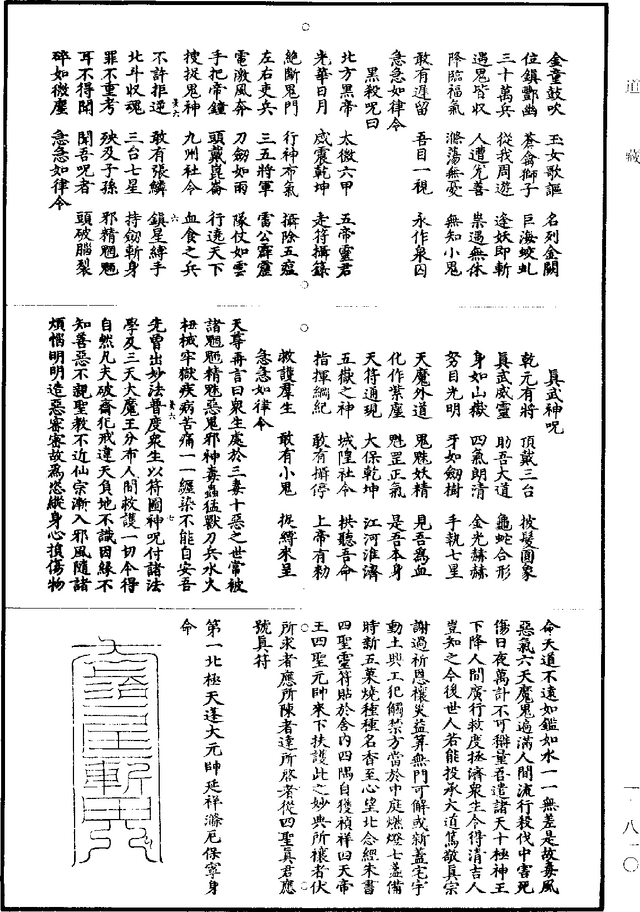 道藏
金童鼓吹 玉女歌謳 名列金闕
位鎮酆幽 蒼龠獅子 巨海蛟虬
三十萬兵 從我周遊 逢妖即斬
遇鬼皆收 人遭先善 祟過無休
降臨福氣 滌蕩無憂 無知小鬼
敢有遲留 吾目一視 永作泉囚
急急如律令
黑殺呪曰
北方黑帝 太微六甲 五帝靈君
光華日月 威震乾坤 走符攝籙
絕斷鬼門 行神布氣 攝除五瘟
左右吏兵 三五將軍 雷公霹靂
電激風奔 刀劍如雨 隊仗如雲
手把帝鐘 頭戴崑崙 行遶天下
搜捉鬼神 九州社令 血食之兵
不許拒逆 敢有張鱗 鎮星縛手
北斗收魂 三台七星 持劍斬身
罪不重考 殃及子孫 邪精魍魎
耳不得聞 聞吾呪者 頭破腦裂
碎如微塵 急急如律令
真武神呪
乾元有將 頂戴三台 披髮圓象
真武威靈 助吾大道 龜蛇合形
身如山嶽 四氣朗清 金光赫赫
努目光明 牙如劍樹 手執七星
天魔外道 鬼魅妖精 見吾為血
化作紫塵 魁罡正氣 是吾本身
天符通現 大保乾坤 江河淮濟
五嶽之神 城隍社令 拱聽吾命
指揮綱紀 敢有攝停 上帝有勑
救護羣生 敢有小鬼 捉縛來呈
急急如律令
天尊再言曰衆生處於三妻十惡之世常被
諸魍魎精魅惡鬼邪神毒蟲猛獸刀兵水火
杻械牢獄疾病苦痛一一纏染不能自安吾
先曾出妙法普度衆生以符圖神呪付諸法
學及三天大魔王分布人間救護一切今得
自然凡夫破齋犯戒違天負地不識因緣不
知善惡不親聖教不近仙宗漸入邪風隨諸
煩惱明明造惡審審故為恣縱身心損傷物
命天道不遠如鑑如水一一無差是故毒風
惡氣六天魔鬼遍滿人間流行殺伐中害死
傷日夜萬計不可辯量吾遣諸天十極神王
下降人間廣行救度拯濟衆生令得清吉人
豈知之今後世人若能投承大道篤敬真宗
謝過祈恩禳災益算無門可解或新蓋宅宇
動土興工犯觸禁方當於中庭燃燈七盞備
時新五菓燒種種名香至心望北念經朱書
四聖靈符貼於舍內四隅自獲禎祥四天帝
王四聖元帥來下扶護此之妙典所禳者伏
所求者應所陳者達所啓者從四聖真君應
號真符
第一北極天蓬大元帥延祥滌厄保寧身
命
一·八一〇